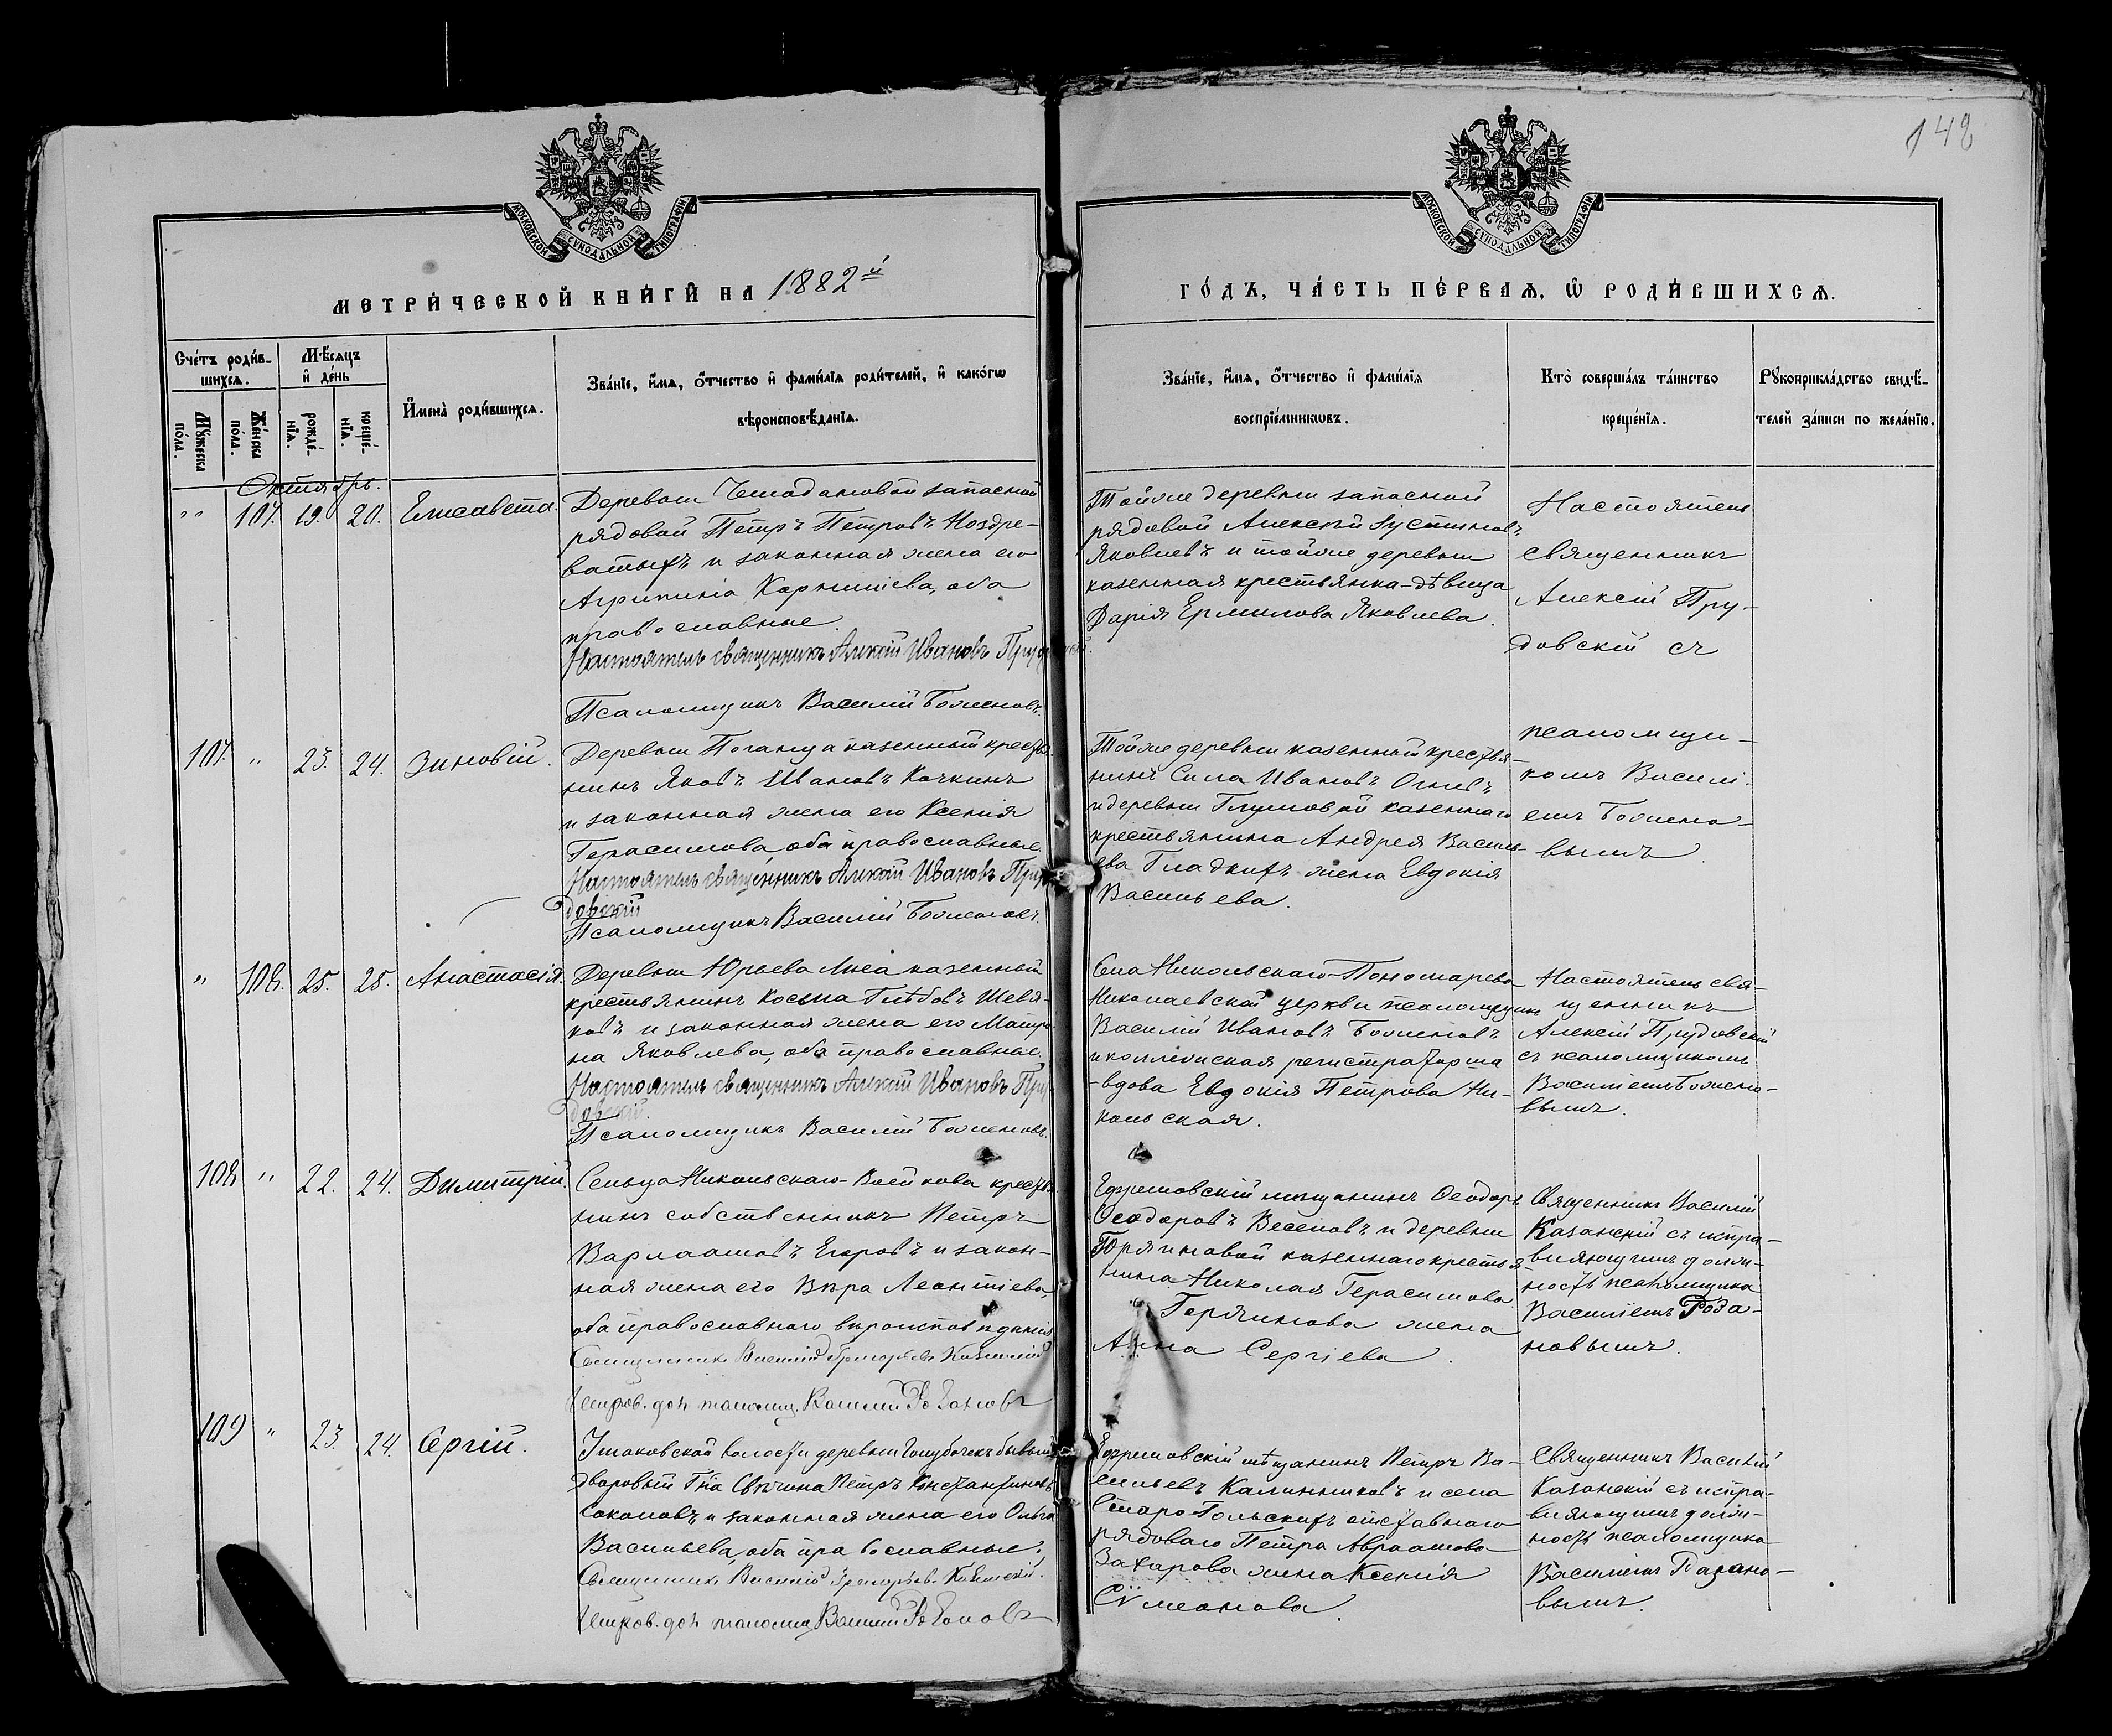 148
МОСКОВСКОЙ СѴНОДАЛЬНОЙ ТИПОГРАФІИ
МОСКОВСКОЙ СѴНОДАЛЬНОЙ ТИПОГРАФІИ
МЕТРИ́ЧЕСКОЙ КНИ́ГИ НА 1882й
ГО́ДЪ, ЧА́СТЬ ПЕ́РВАѦ, Ѡ РОДИ́ВШИХСѦ.
Сче́тъ роди́в-
шихсѧ.
Мѣ́сяцъ
и де́нь
Мꙋ́жеска
по́ла.
Же́нска
по́ла.
рожде́-
нїѧ.
креще́-
нїѧ.
Имена̀ роди́вшихсѧ.
Зва́нїе, и́мѧ, ѻ́тчество и фами́лїѧ роди́телей, и како́гѡ
вѣроисповѣ́данїѧ.
Зва́нїе, и́мѧ, ѻ́тчество и фами́лїѧ
воспрїе́мникѡвъ.
Кто̀ соверша́лъ та́инство
креще́нїѧ.
Рꙋкоприкла́дство свидѣ́-
телей за́писи по жела́нїю.
Октябрь.
" 107. 19. 20. Елисавета.
Деревни Чемодановой запасный
рядовой Петръ Петровъ Ноздре-
ватыхъ и законная жена его
Агрипина Корнилiева, оба
православные.
Настоятель священникъ Алексій Ивановъ Прудовскій.
Псаломщикъ Василій Боженовъ.
Тойже деревни запасный
рядовой Алексѣй Іустиновъ
Яковлевъ и тойже деревни
казенная крестьянка-дѣвица
Дарія Ермилова Яковлева.
Настоятель
священникъ
Алексій Пру-
довскій съ
псаломщи-
комъ Василі-
емъ Божено-
вымъ.
107. " 23. 24. Зиновій.
Деревни Поганца казенный крестья-
нинъ Яковъ Ивановъ Качкинъ
и законная жена его Ксенія
Герасимова, оба православные.
Настоятель священникъ Алексій Ивановъ Пру-
довскій
Псаломщикъ Василій Боженовъ.
Тойже деревни казенный крестья-
нинъ Сила Ивановъ
и деревни Глумовой казеннаго
крестьянина Андрея Василь-
ева Гладкихъ жена Евдокія
Васильева.
" 108. 25. 25. Анастасія.
Деревни Юрьева казенный
крестьянинъ Косьма Глѣбовъ Шевя-
ковъ и законная жена его Матро-
на Яковлева, оба православные.
Настоятель священникъ Алексій Ивановъ Пру-
довскій.
Псаломщикъ Василій Боженовъ.
Села Никольскаго-Пономарева
Николаевской церкви псаломщикъ
Василій Ивановъ Боженовъ
и коллежская регистраторша
-вдова Евдокія Петрова Ни-
кольская.
Настоятель свя-
щенникъ
Алексій Прудовскій
съ псаломщикомъ
Василіемъ Божено-
вымъ.
108. " 22. 24. Димитрій.
Сельца Никольскаго-Воейкова крестья-
нинъ собственникъ Петръ
Варлаамовъ Егоровъ и закон-
ная жена его Вѣра Леонтіева,
оба православнаго вѣроисповѣданія.
Священникъ Василій Григорьевъ Казанскій
Исправ. дол. псаломщ. Василій Розановъ
Ефремовскій мѣщанинъ Ѳеодоръ
Ѳеодоровъ Веселовъ и деревни
Горяиновой казеннаго крестья-
нина Николая Герасимова
Горяинова жена
Анна Сергіева.
Священникъ Василій
Казанскій съ испра-
вляющимъ долж-
ность псаломщика
Василіемъ Роза-
новымъ.
109 " 23. 24. Сергій.
Ушаковской волости деревни Голубочекъ бывшій
дворовый Гна Свѣчина Петръ Константиновъ
Соколовъ и законная жена его Ольга
Васильева, оба православные.
Священникъ Василій Григорьевъ Казанскій.
Исправ. дол. псаломщ. Василій Розановъ
Ефремовскій мѣщанинъ Петръ Ва-
сильевъ Калинниковъ и села
Старо-Гольскихъ отставнаго
рядоваго Петра Авраамова
Захарова жена Ксенія
Сѵмеонова.
Священникъ Василій
Казанскій съ испра-
вляющимъ долж-
ность псаломщика
Василіемъ Розано-
вымъ.